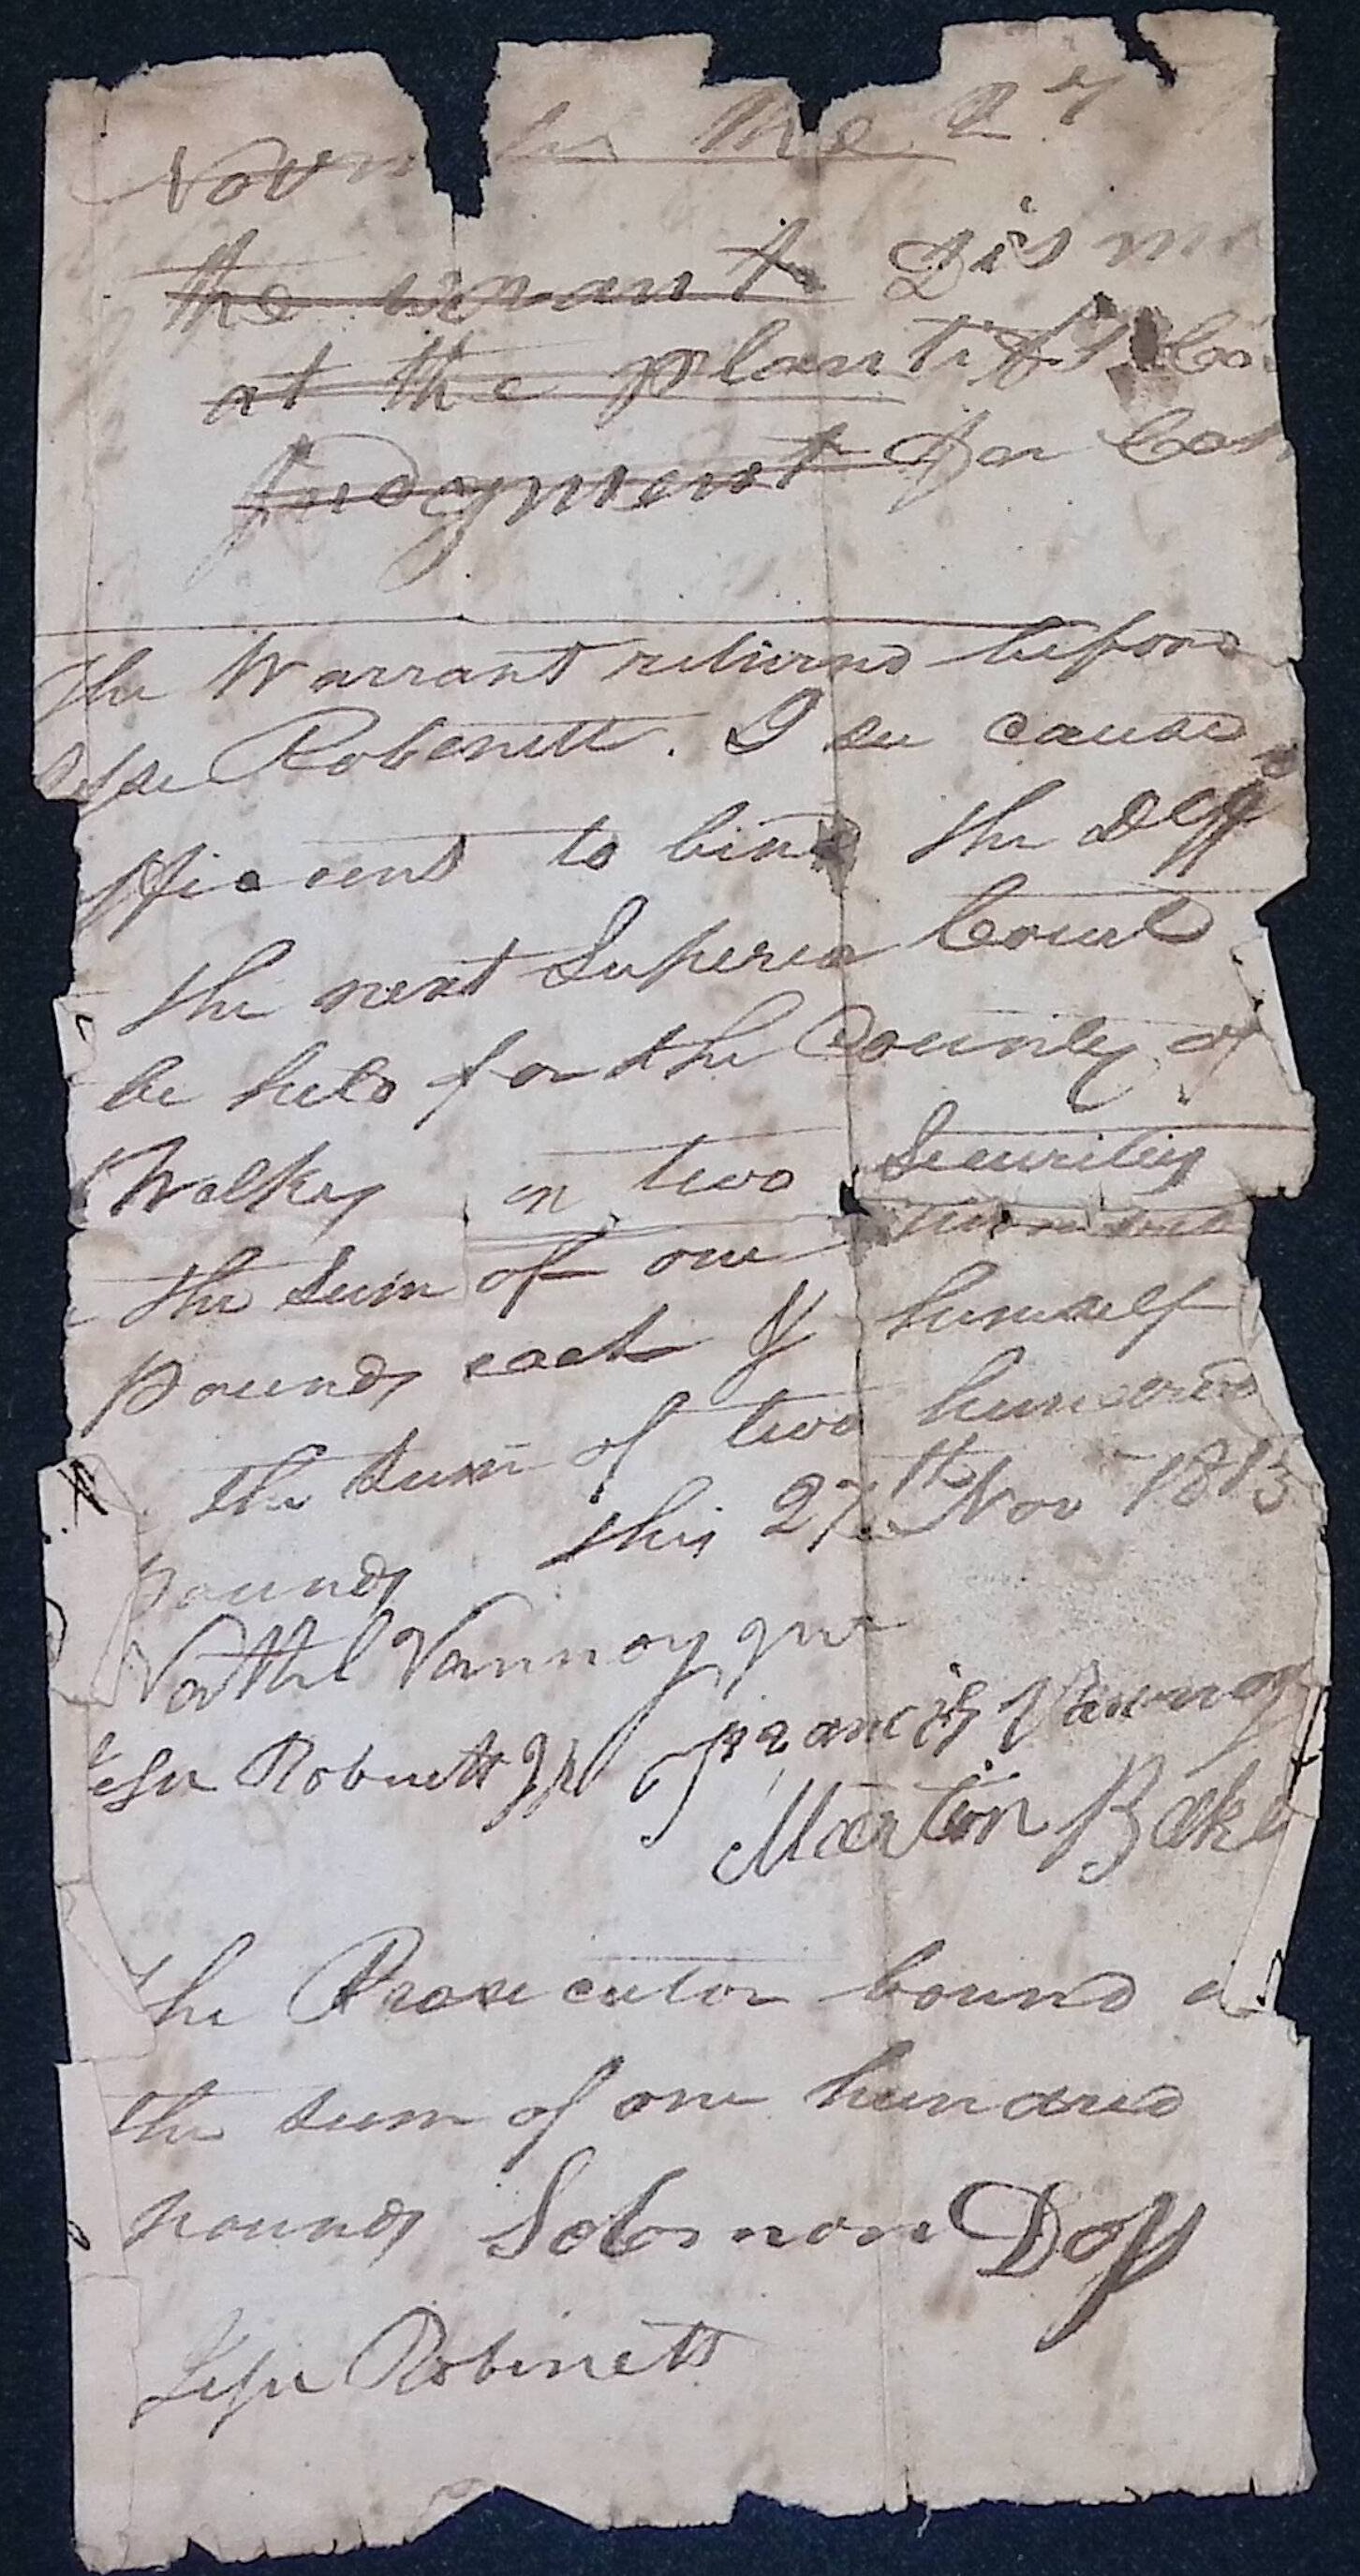 Novm ber the 2
the warant Dis m
at the plantifs Co
Judgment for Cos
The Warrant returnd before
Jesse Robenett. I see cause
fficient to bind the Deff
the next Superea Court
be held for the County of
Wilkes in two Securitiy
the sum of one hundred
pounds each & himself
the sum of two hundred
pounds this 27th Nov 1813
Nathl Vannoy jur
Jesse Robnett JP Francis Vannoy
Martin Bake
The Prosecutor bound i
the sum of one hundred
pounds Solomon Doff
Jesse Robinett